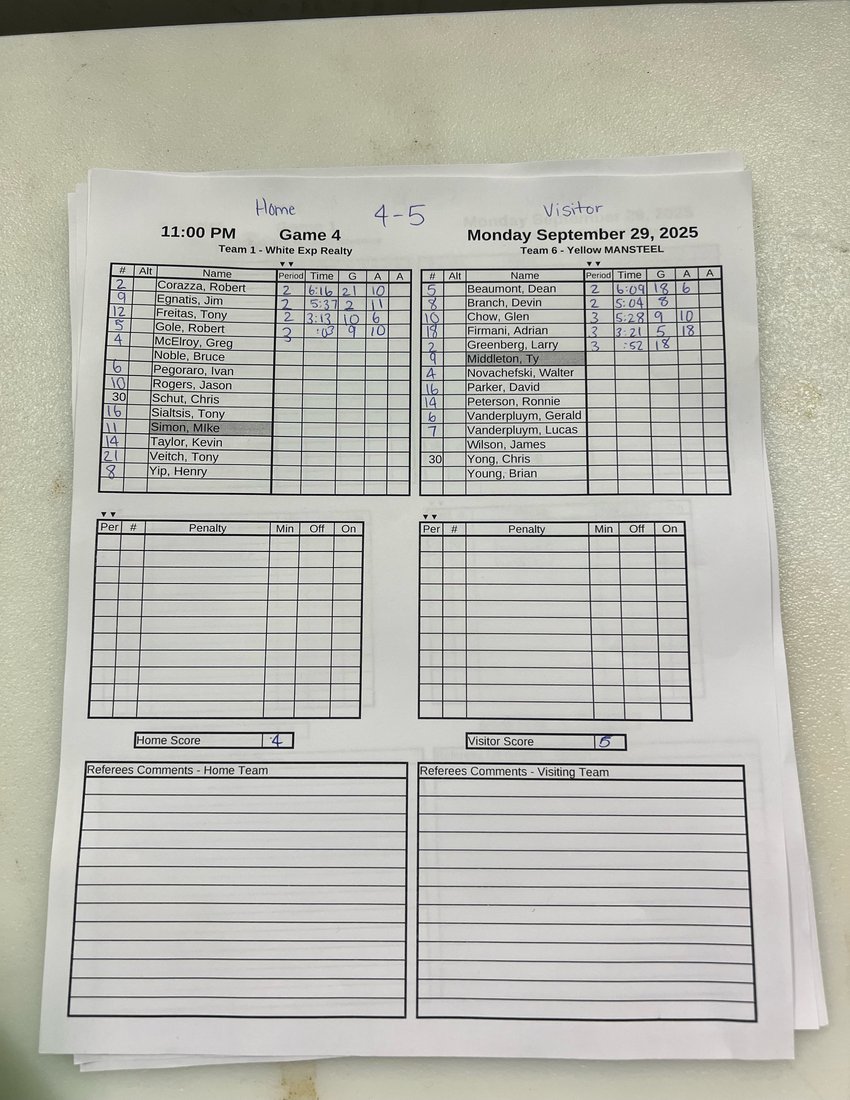 Home 4-5 Visitor
11:00 PM Game 4 Monday September 29, 2025
Team 1 - White Exp Realty Team 6 - Yellow MANSTEEL
# Alt Name Period Time G A A # Alt Name Period Time G A A
2 Corazza, Robert 2 6:16 21 10 5 Beaumont, Dean 2 6:09 18 6
9 Egnatis, Jim 2 5:37 2 11 8 Branch, Devin 2 5:04 8
12 Freitas, Tony 2 3:13 10 6 10 Chow, Glen 3 5:28 9 10
5 Gole, Robert 3 :03 9 10 18 Firmani, Adrian 3 3:21 5 18
4 McElroy, Greg 2 Greenberg, Larry 3 :52 18
Noble, Bruce 9 Middleton, Ty
6 Pegoraro, Ivan 4 Novachefski, Walter
10 Rogers, Jason 16 Parker, David
30 Schut, Chris 14 Peterson, Ronnie
16 Sialtsis, Tony 6 Vanderpluym, Gerald
11 Simon, MIke 7 Vanderpluym, Lucas
14 Taylor, Kevin Wilson, James
21 Veitch, Tony 30 Yong, Chris
8 Yip, Henry Young, Brian
Per # Penalty Min Off On Per # Penalty Min Off On
Home Score 4 Visitor Score 5
Referees Comments - Home Team Referees Comments - Visiting Team